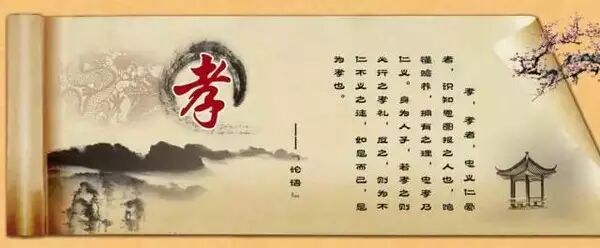 孝
孝，孝者，忠义仁爱
者，识知恩图报之人也，
懂赡养，拥有之理，忠孝乃
仁义。身为人子，若孝之则
必行之孝礼，应之，则为不
仁不义之迹，如是而已，是
为孝也。
——『论语』